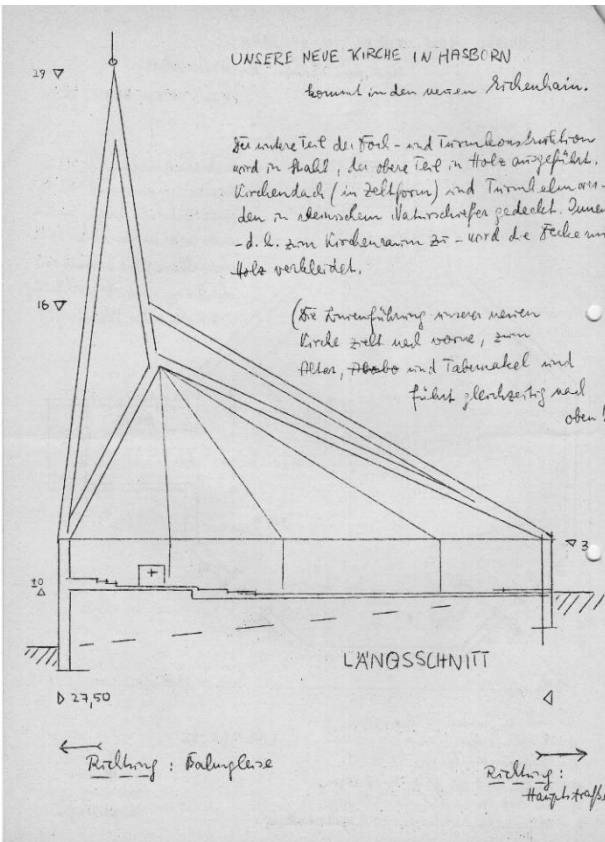 UNSERE NEUE KIRCHE IN HASBORN
kommt in den neuen Eichenhain.
29
Der untere Teil der Dach- und Turmkonstruktion
wird in Stahl, der obere Teil in Holz ausgeführt.
Kirchendach (in Zeltform) und Turmhelm wer-
den in rheinischem Naturschiefer gedeckt. Innen
- d. h. zum Kirchenraum zu - wird die Decke mit
Holz verkleidet.
16
(Die Linienführung unserer neuen
Kirche zielt nach vorne, zum
Altar, und Tabernakel und
führt gleichzeitig nach
oben!
3
10
LÄNGSSCHNITT
27,50
Richtung: Bahngleise
Richtung:
Hauptstraße